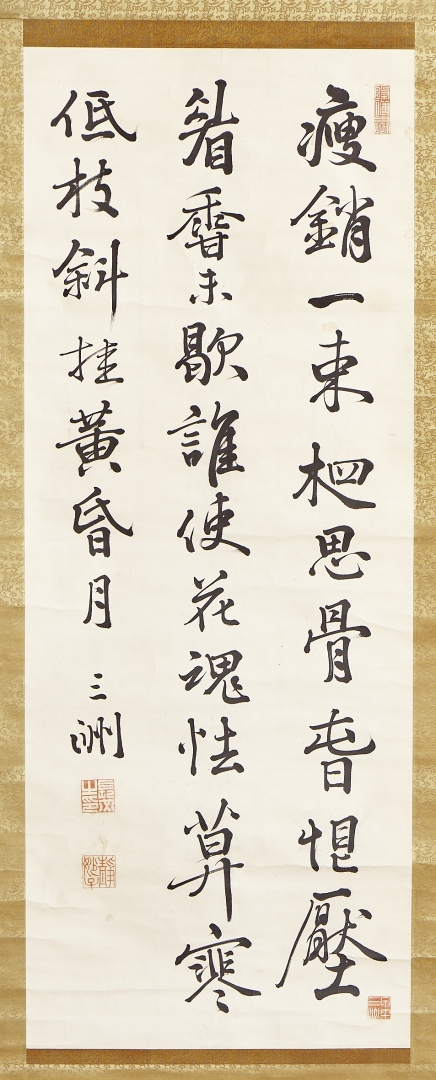 瘦銷一束相思骨春恨壓
眉香未歇誰使花魂怯莫寒
低枝斜挂黃昏月
三洲